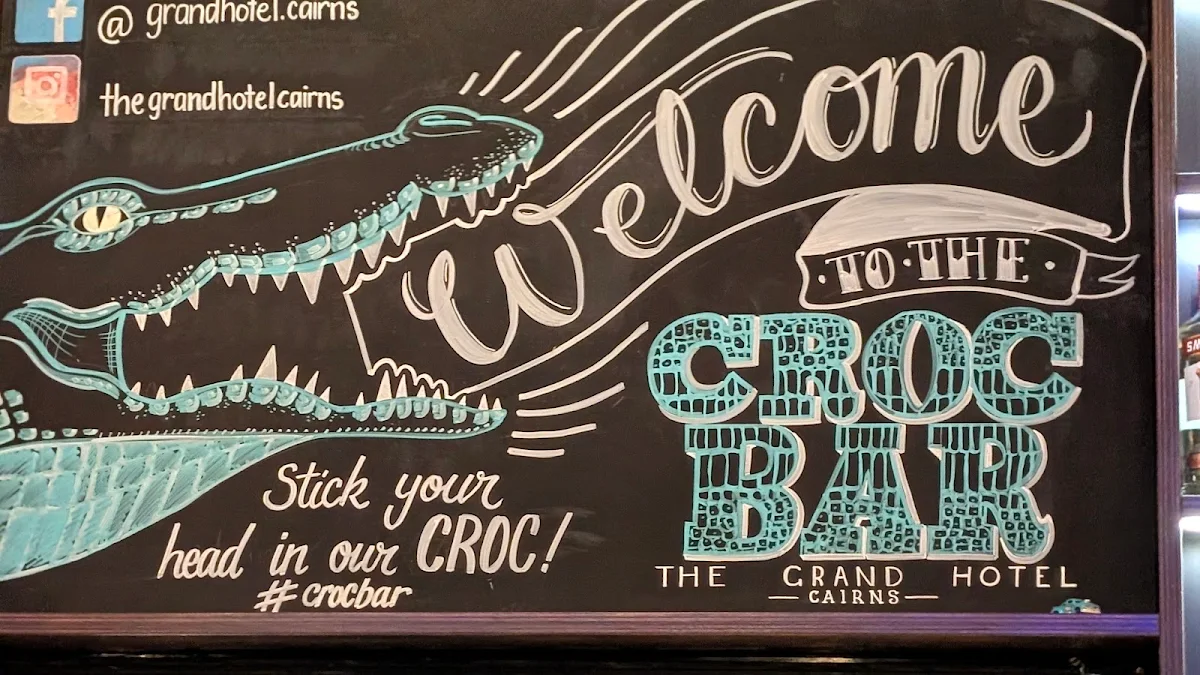 @ grandhotel.cairns
thegrandhotelcairns
Welcome
·TO·THE·
CROC
BAR
THE GRAND HOTEL
CAIRNS
Stick your
head in our CROC!
#crocbar